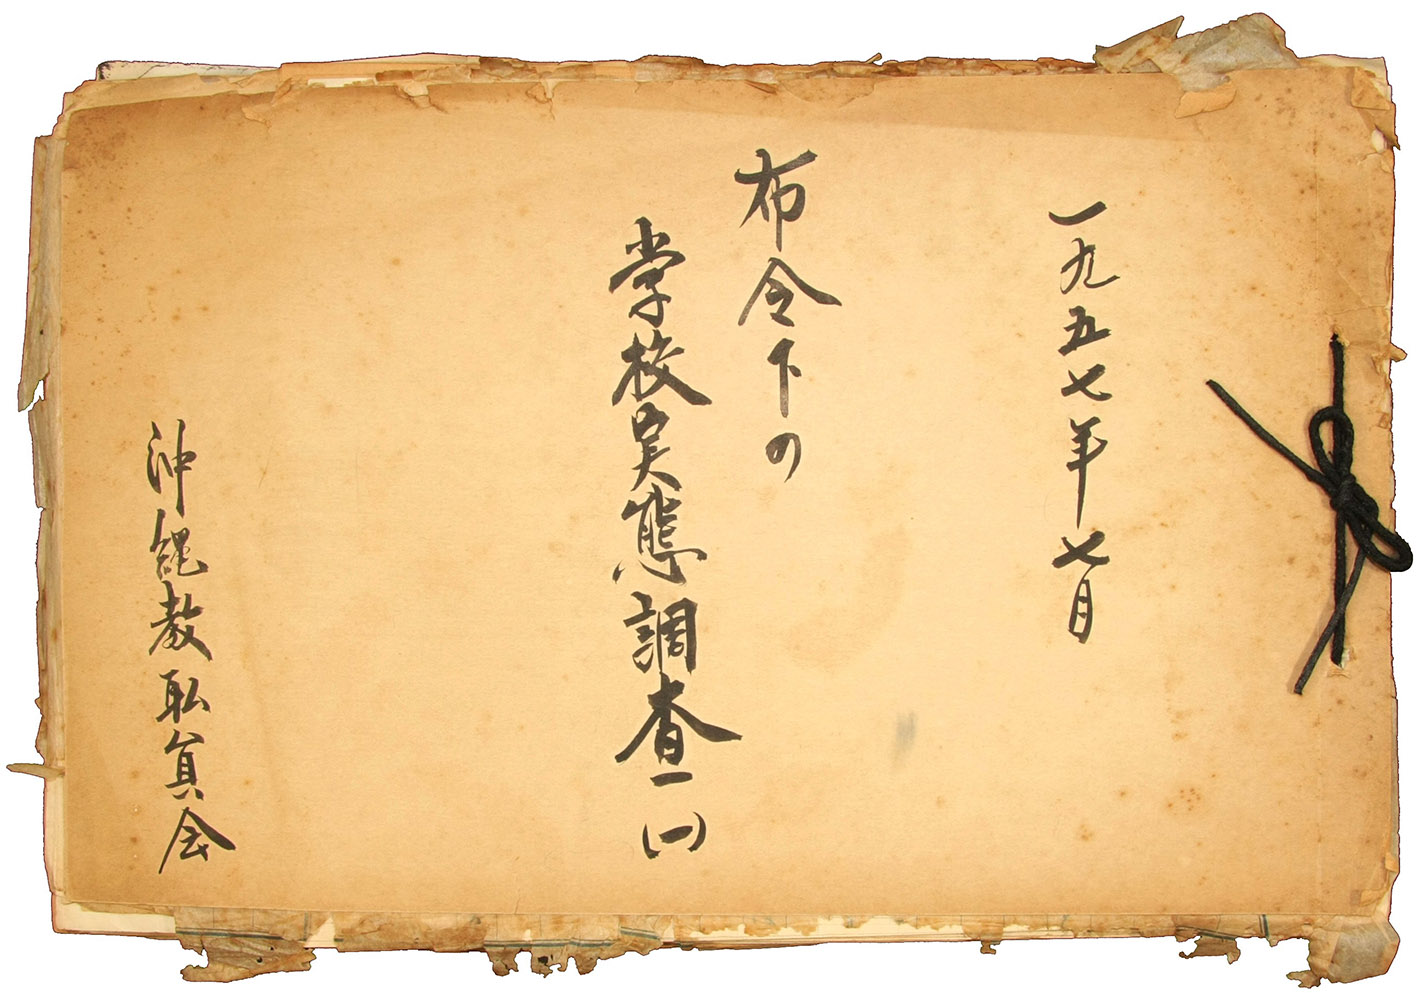 一九五七年七月
布令下の
学校実態調査(一)
沖縄教职員会